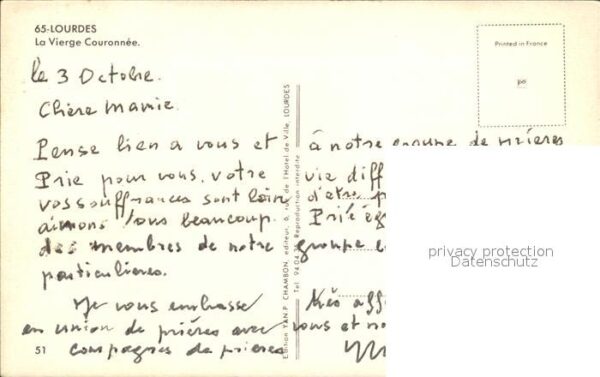 65-LOURDES
La Vierge Couronnée.
Printed in France
le 3 Octobre.
Chère Mamie.
Pense bien a vous et à notre groupe de prières
Prie pour vous. votre vie diff
vos souffrances sont loin d'etre
aimons Vous beaucoup. Prié
des membres de notre groupe
particulières.
Je vous embrasse
en union de prières avec vous et no
compagnes de prieres
51
Edition YAN P. CHAMBON, editeur, 6, rue de l'Hotel de Ville, LOURDES
Tel. 94.04. Reproduction interdite
privacy protection
Datenschutz